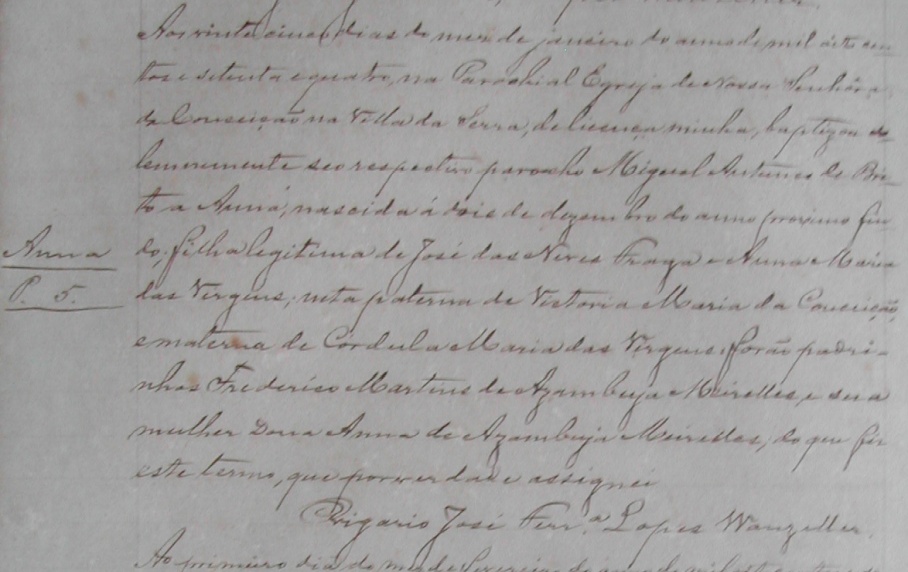 Aos vinte cinco dias do mez de janeiro do anno de mil oito cen-
tos e setenta e quatro, na Parochial Egreja de Nossa Senhora
da Conceição na Villa da Serra, de licença minha, baptizou so-
lemnemente seo respectivo parocho Miguel Antunes de Bri-
to a Anna, nascida á dois de dezembro do anno proximo fin-
Anna
do, filha legitima de José das Neves Fraga e Anna Maria
P. 5.
das Vergens; neta paterna de Victoria Maria da Conceição,
e materna de Córdula Maria das Vergens; forão padri-
nhos Frederico Martins de Azambuja Meirelles, e sua
mulher Dona Anna de Azambuja Meirelles; do que fiz
este termo, que por verdade assignei
Vigario José Ferr.ª Lopes Wanzeller.
Ao primeiro dia do mez de fevereiro do anno de mil